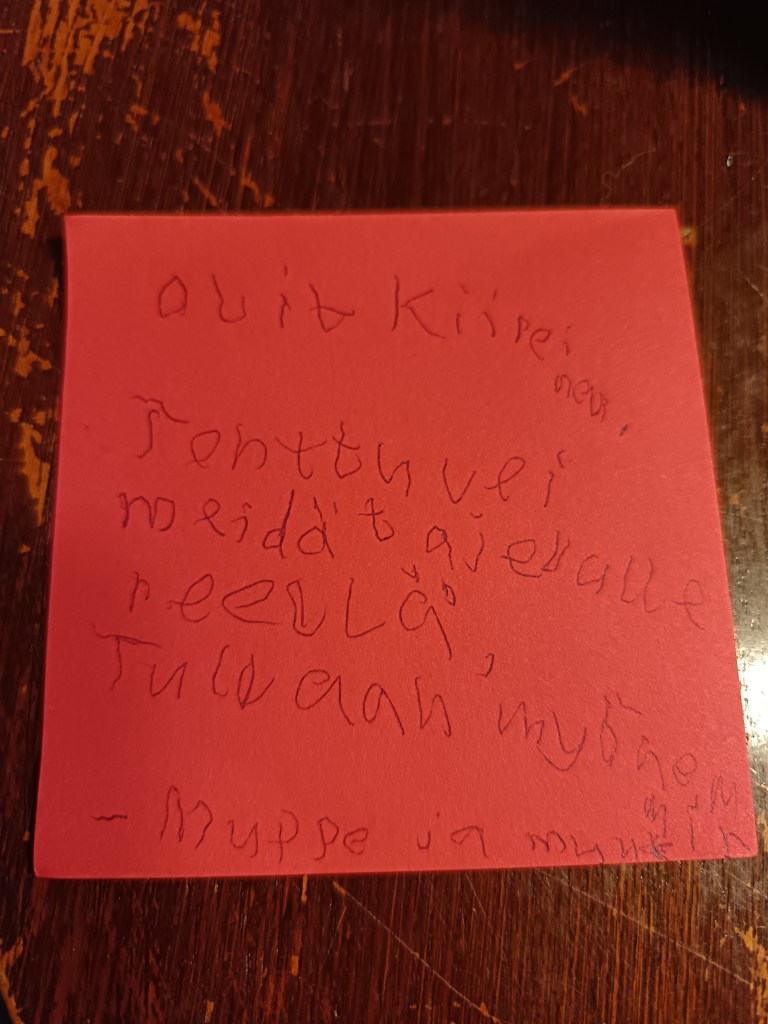 Olit Kiirei
nen.
Terttu vei
meidät ajelulle
reellä,
Tullaan myöhem
min
- Muppe ja muutkin